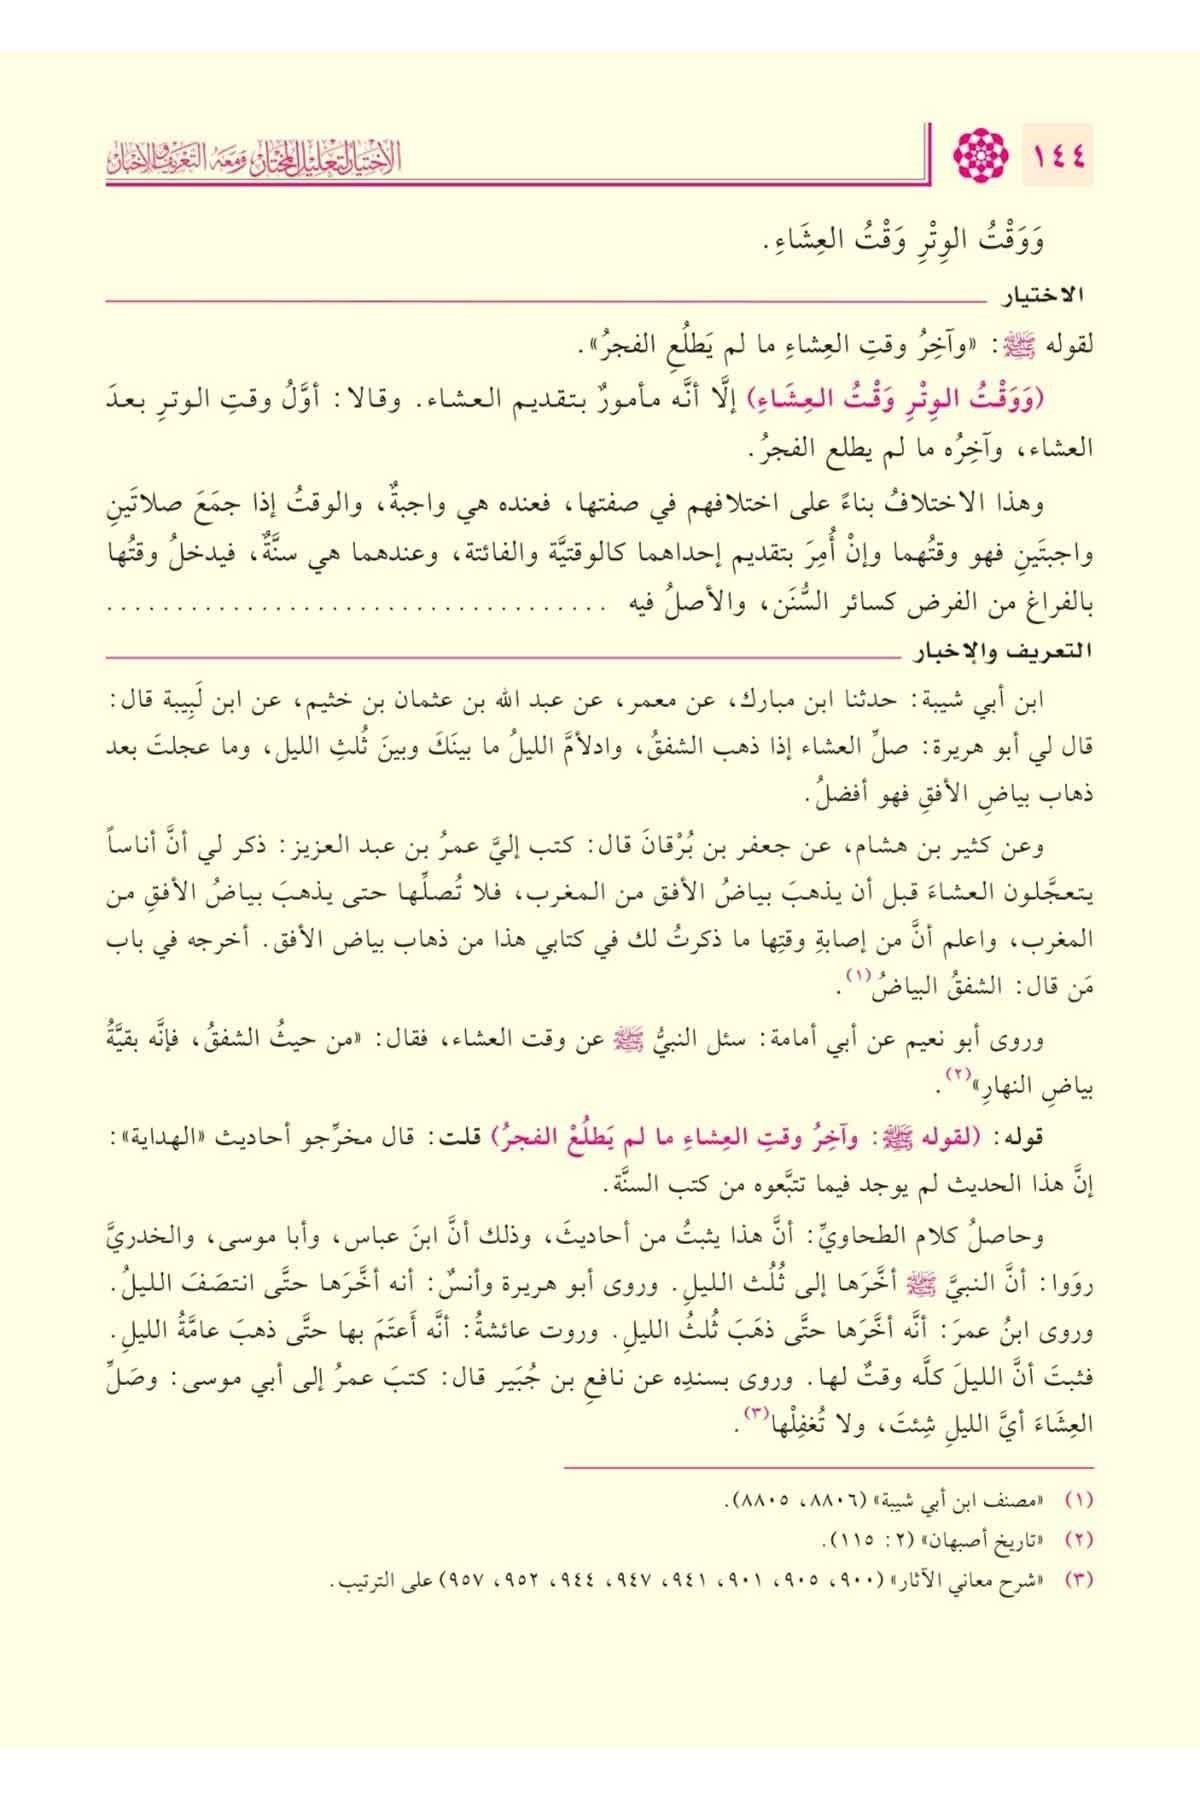 ١٤٤
الاختيار لتعليل المختار ومعه التعريف والإخبار
وَوَقْتُ الوِتْرِ وَقْتُ العِشَاءِ.
الاختيار
لقوله ﷺ: «وآخِرُ وقتِ العِشاءِ ما لم يَطلُعِ الفجرُ».
(وَوَقْتُ الوِتْرِ وَقْتُ العِشَاءِ) إلَّا أنَّه مأمورٌ بتقديم العشاء. وقالا: أوَّلُ وقتِ الوترِ بعدَ
العشاء، وآخِرُه ما لم يطلع الفجرُ.
وهذا الاختلافُ بناءً على اختلافهم في صفتها، فعنده هي واجبةٌ، والوقتُ إذا جمَعَ صلاتَينِ
واجبتَينِ فهو وقتُهما وإنْ أُمِرَ بتقديم إحداهما كالوقتيَّة والفائتة، وعندهما هي سنَّةٌ، فيدخلُ وقتُها
بالفراغ من الفرض كسائر السُّنَن، والأصلُ فيه ....................................
التعريف والإخبار
ابن أبي شيبة: حدثنا ابن مبارك، عن معمر، عن عبد الله بن عثمان بن خثيم، عن ابن لَبِيبة قال:
قال لي أبو هريرة: صلِّ العشاء إذا ذهب الشفقُ، وادلأمَّ الليلُ ما بينَكَ وبينَ ثُلثِ الليل، وما عجلتَ بعد
ذهاب بياضِ الأفقِ فهو أفضلُ.
وعن كثير بن هشام، عن جعفر بن بُرْقانَ قال: كتب إليَّ عمرُ بن عبد العزيز: ذكر لي أنَّ أناساً
يتعجَّلون العشاءَ قبل أن يذهبَ بياضُ الأفق من المغرب، فلا تُصلِّها حتى يذهبَ بياضُ الأفقِ من
المغرب، واعلم أنَّ من إصابةِ وقتِها ما ذكرتُ لك في كتابي هذا من ذهاب بياض الأفق. أخرجه في باب
مَن قال: الشفقُ البياضُ(١).
وروى أبو نعيم عن أبي أمامة: سئل النبيُّ ﷺ عن وقت العشاء، فقال: «من حيثُ الشفقُ، فإنَّه بقيَّةُ
بياضِ النهارِ»(٢).
قوله: (لقوله ﷺ: وآخِرُ وقتِ العِشاءِ ما لم يَطلُعْ الفجرُ) قلت: قال مخرِّجو أحاديث «الهداية»:
إنَّ هذا الحديث لم يوجد فيما تتبَّعوه من كتب السنَّة.
وحاصلُ كلام الطحاويِّ: أنَّ هذا يثبتُ من أحاديثَ، وذلك أنَّ ابنَ عباس، وأبا موسى، والخدريَّ
رووا: أنَّ النبيَّ ﷺ أخَّرَها إلى ثُلُث الليلِ. وروى أبو هريرة وأنسٌ: أنه أخَّرَها حتَّى انتصَفَ الليلُ.
وروى ابنُ عمرَ: أنَّه أخَّرَها حتَّى ذهَبَ ثُلثُ الليلِ. وروت عائشةُ: أنَّه أَعتَمَ بها حتَّى ذهبَ عامَّةُ الليلِ.
فثبتَ أنَّ الليلَ كلَّه وقتٌ لها. وروى بسندِه عن نافعِ بن جُبَير قال: كتبَ عمرُ إلى أبي موسى: وصَلِّ
العِشَاءَ أيَّ الليلِ شِئتَ، ولا تُغفِلْها(٣).
(١) «مصنف ابن أبي شيبة» (٨٨٠٦، ٨٨٠٥).
(٢) «تاريخ أصبهان» (٢: ١١٥).
(٣) «شرح معاني الآثار» (٩٠٠، ٩٠٥، ٩٠١، ٩٤١، ٩٤٧، ٩٤٤، ٩٥٢، ٩٥٧) على الترتيب.